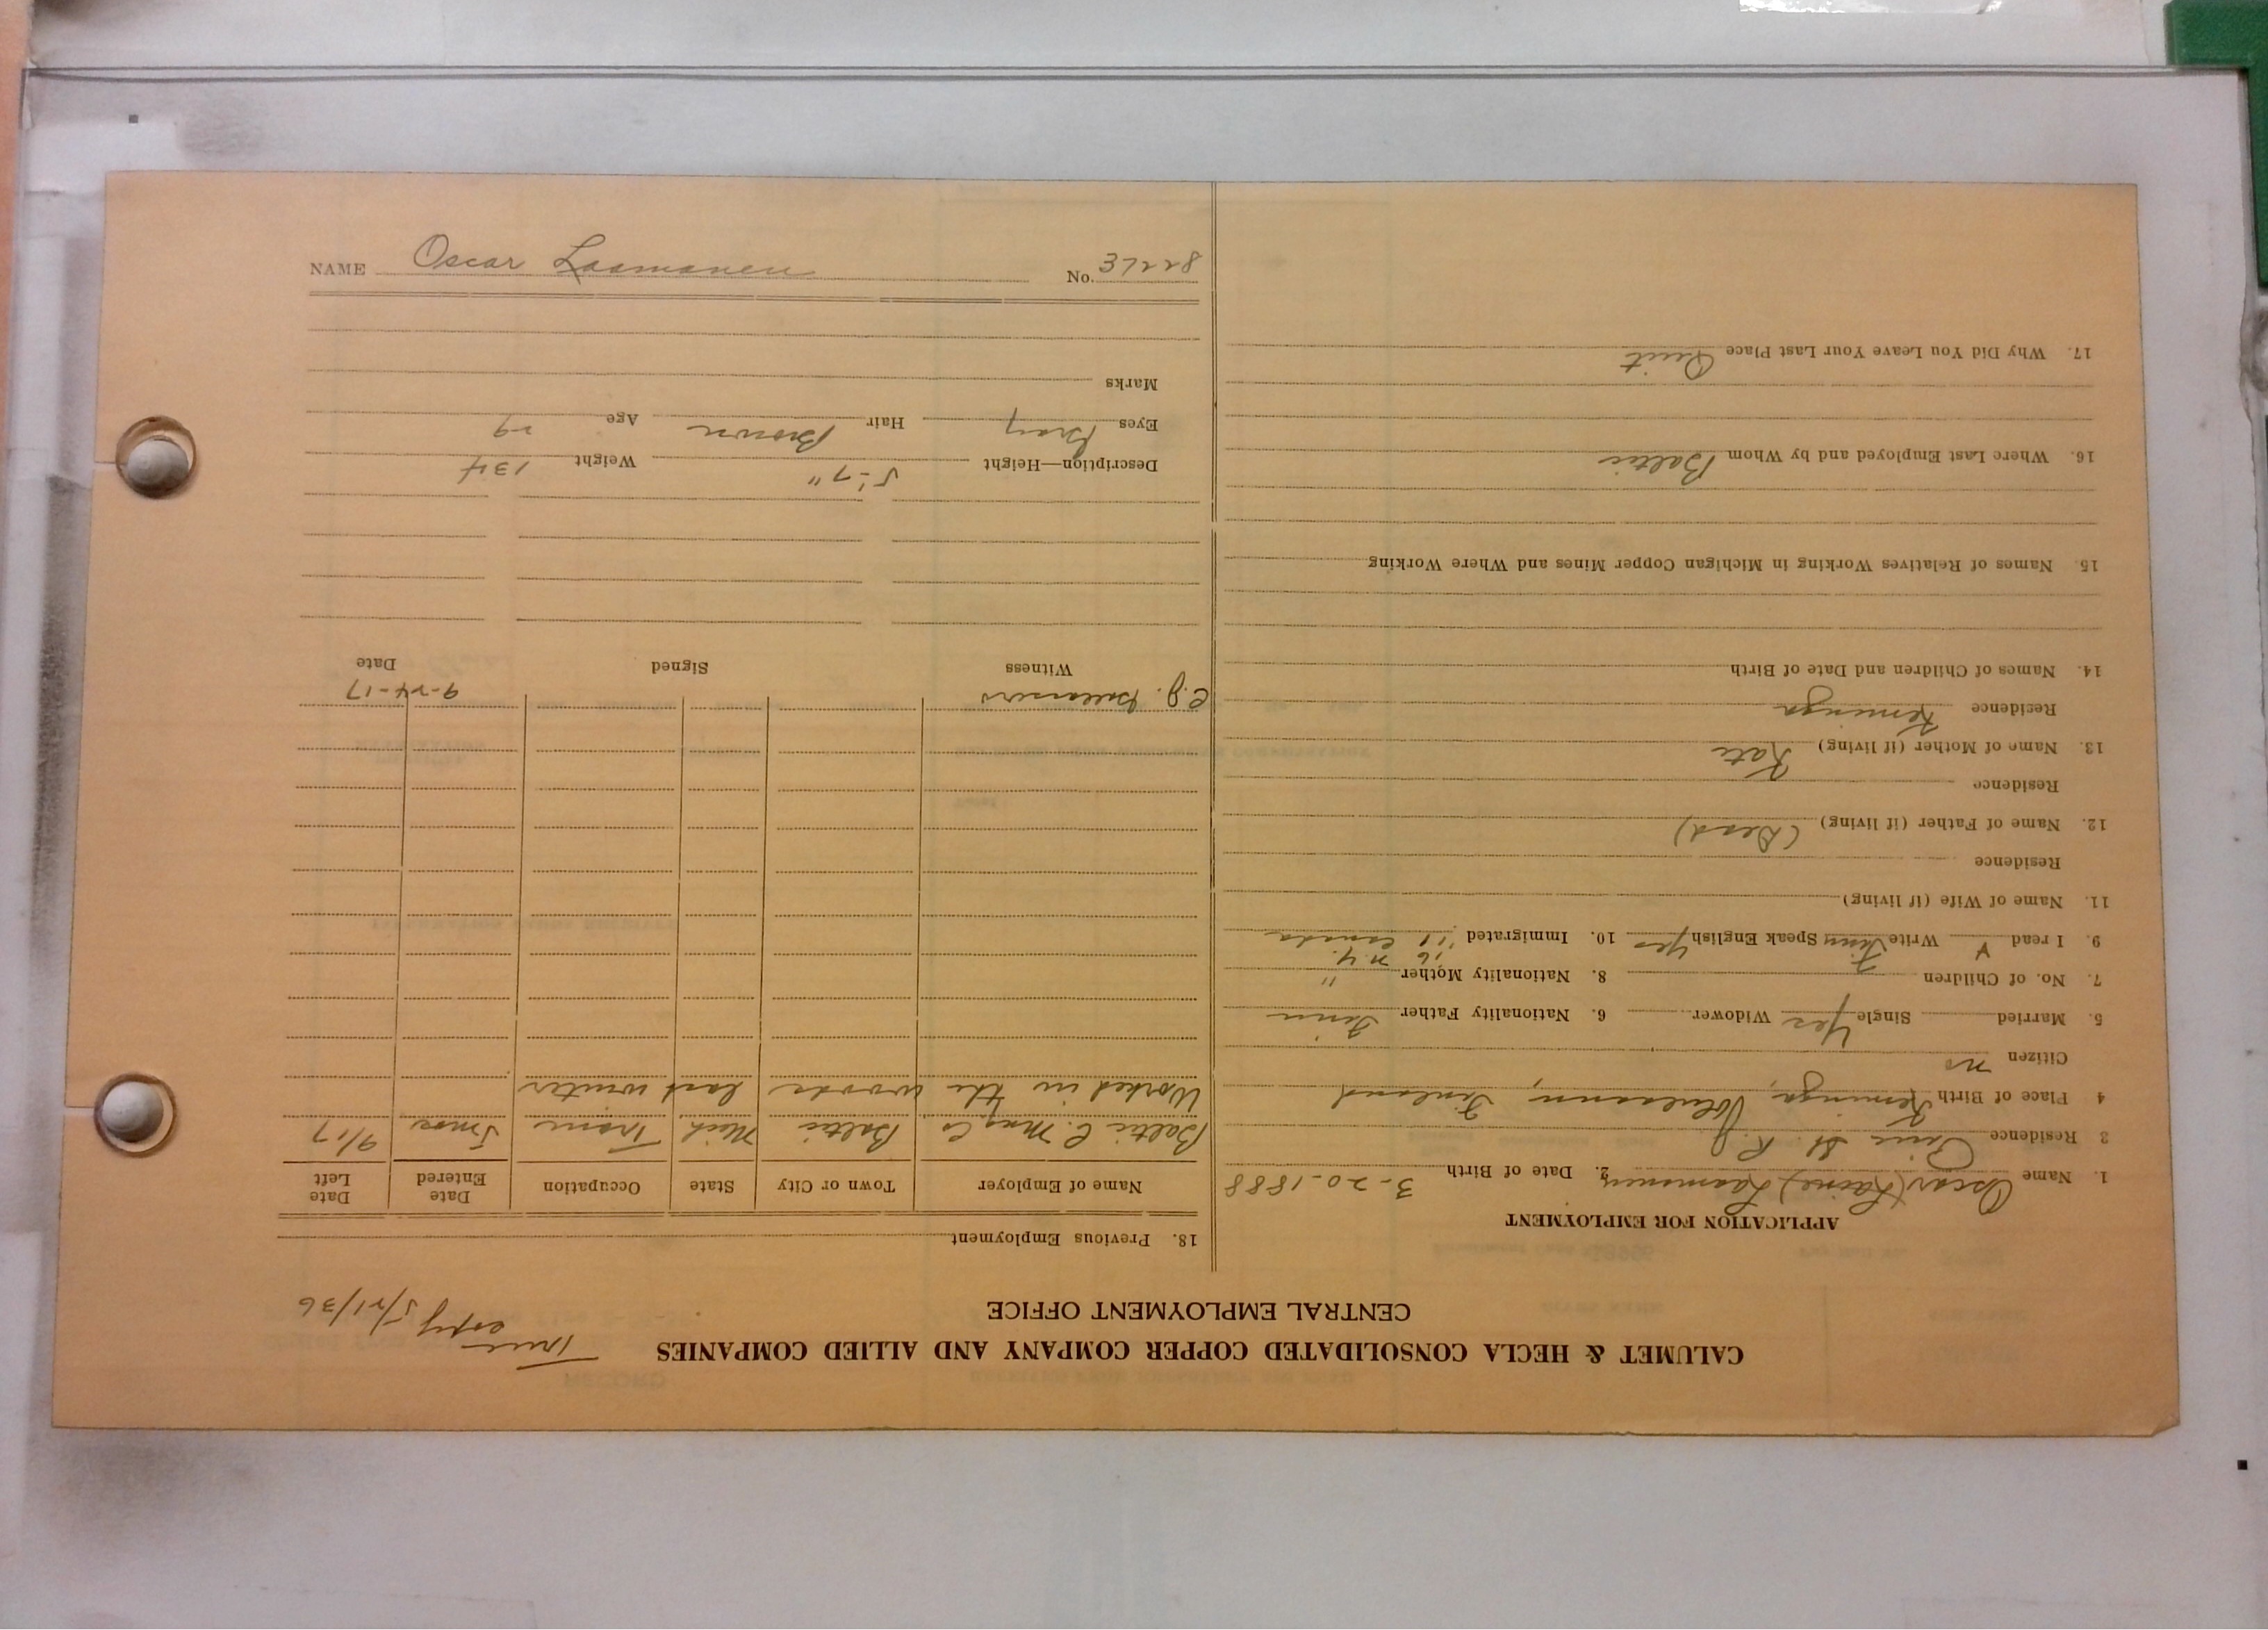 CALUMET & HECLA CONSOLIDATED COPPER COMPANY AND ALLIED COMPANIES
CENTRAL EMPLOYMENT OFFICE
True
copy 5/21/36
APPLICATION FOR EMPLOYMENT
1. Name Oscar (Laine) Laamanen 2. Date of Birth 3-20-1888
3 Residence Pine St. R.J.
4 Place of Birth Keminga, Finland
Citizen no
5. Married Single Yes Widower 6. Nationality Father Finn
7. No. of Children 8. Nationality Mother "
'16 N.Y.
9. I read Write Finn Speak English Yes 10. Immigrated '11 Canada
11. Name of Wife (if living)
Residence
12. Name of Father (if living) (Dead)
Residence
13. Name of Mother (if living) Kate
Residence Keminga
14. Names of Children and Date of Birth
15. Names of Relatives Working in Michigan Copper Mines and Where Working
16. Where Last Employed and by Whom Baltic
17. Why Did You Leave Your Last Place Quit
18. Previous Employment
Name of Employer Town or City State Occupation Date Entered Date Left
Baltic C. Mng Co Baltic Mich Tram 5 mos 9/17
Worked in the woods last winter
C.J. 9-24-17
Witness Signed Date
Description—Height 5'-7" Weight 134
Eyes Gray Hair Brown Age 29
Marks
NAME Oscar Laamanen No. 37228